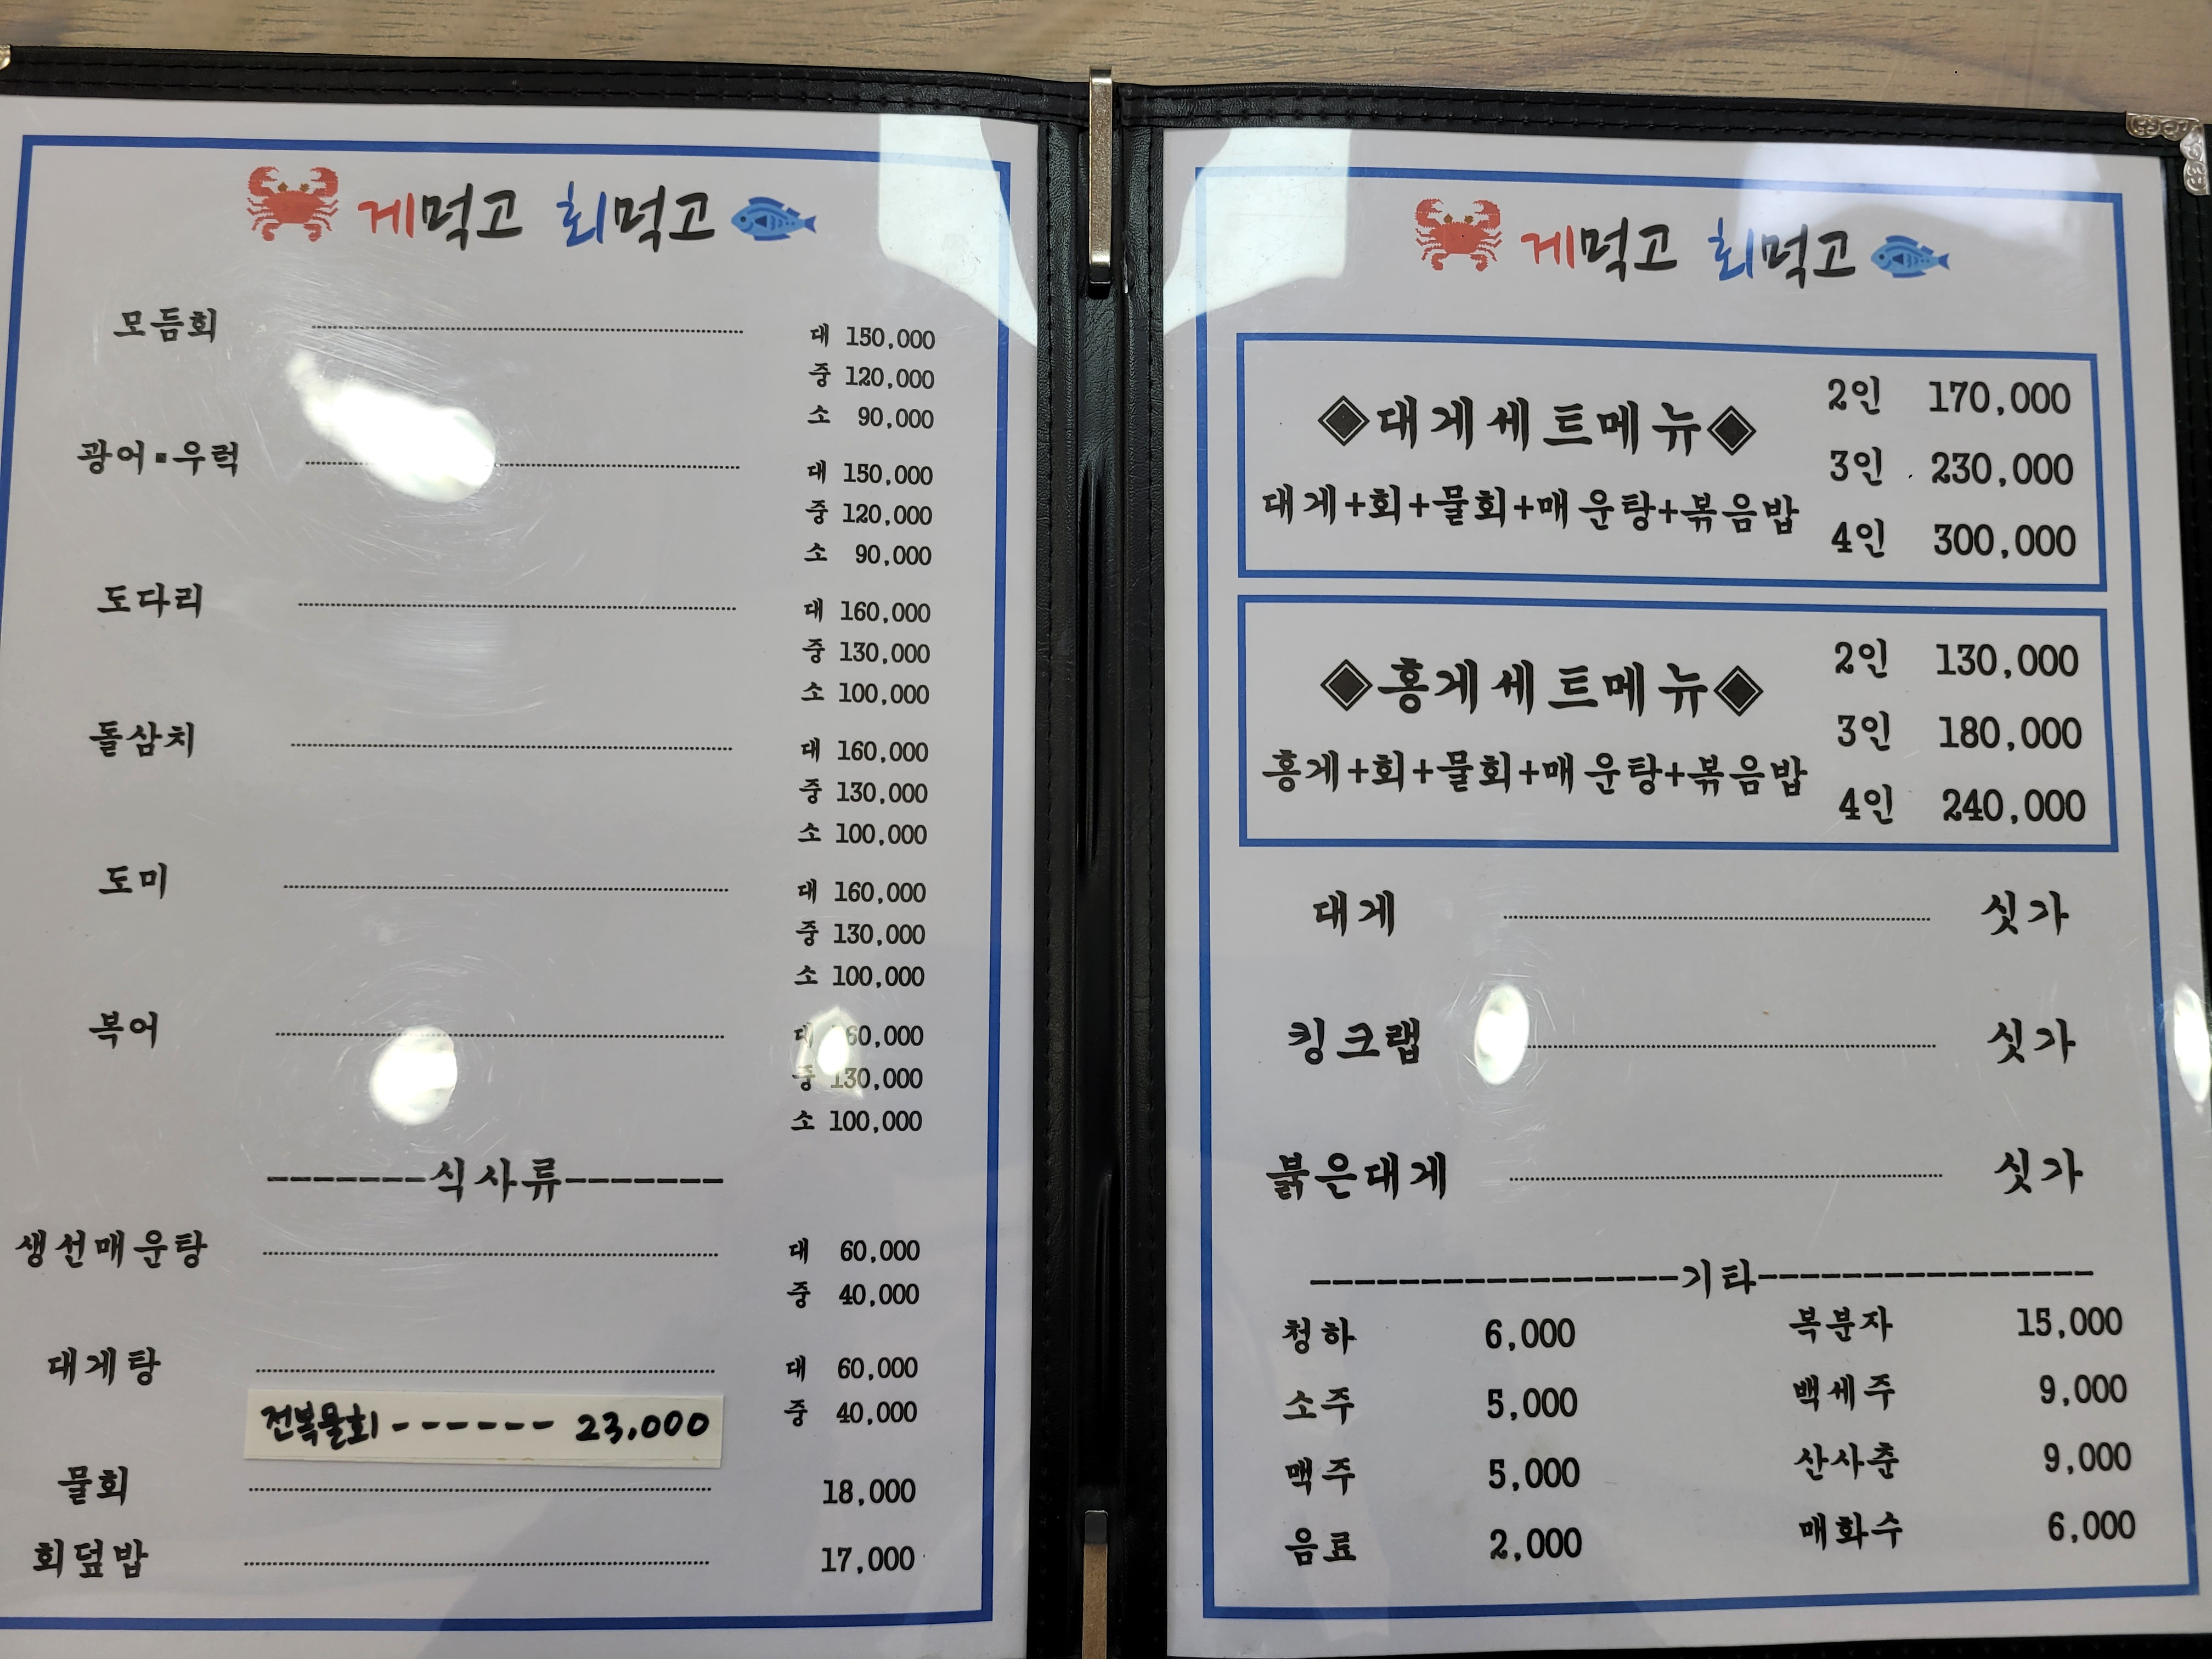 게먹고 회먹고
모듬회 대 150,000
중 120,000
소 90,000
광어▪우럭 대 150,000
중 120,000
소 90,000
도다리 대 160,000
중 130,000
소 100,000
돌삼치 대 160,000
중 130,000
소 100,000
도미 대 160,000
중 130,000
소 100,000
복어 대 60,000
중 130,000
소 100,000
-------식사류-------
생선매운탕 대 60,000
중 40,000
대게탕 대 60,000
중 40,000
전복물회------ 23,000
물회 18,000
회덮밥 17,000
게먹고 회먹고
◈대게세트메뉴◈
대게+회+물회+매운탕+볶음밥
2인 170,000
3인 230,000
4인 300,000
◈홍게세트메뉴◈
홍게+회+물회+매운탕+볶음밥
2인 130,000
3인 180,000
4인 240,000
대게 싯가
킹크랩 싯가
붉은대게 싯가
------------------기타----------------
청하 6,000 복분자 15,000
소주 5,000 백세주 9,000
맥주 5,000 산사춘 9,000
음료 2,000 매화수 6,000